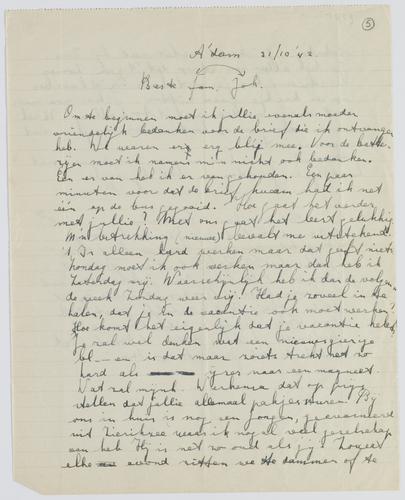 5
A'dam 21/10 '42
Beste fam. Joh.
Om te beginnen moet ik jullie, evenals moeder
vriendelijk bedanken voor de brief die ik ontvangen
heb. We waren erg erg blij mee. Voor de
moet ik namens m'n nicht ook bedanken.
Een er van had ik er Een paar
minuten voor dat de brief kwam had ik net
één op de bus gegooid. Hoe gaat het verder
met jullie? Met ons gaat het best gelukkig.
M'n betrekking (nieuwe) bevalt me uitstekend.
't Is alleen hard werken maar dat geeft niets
Zondag moet ik ook werken maar dan heb ik
Zaterdag vrij. Waarschijnlijk heb ik dan de volgen-
de week Zondag weer vrij. Had je zoveel in te
halen, dat je in de vacantie ook moet werken?
Hoe komt het eigenlijk dat je vacantie hebt,
je zal wel denken wat een nieuwsgierige
is dat maar zoiets trekt net zo
hard als ijzer naar een magneet.
Wat zal mijnh. Werkman dat op prijs
stellen dat jullie allemaal pakjes sturen. Bij
ons in huis is nog een jongen, geëvacueerd
uit Zierikzee waar ik nog al veel gezelschap
aan heb. Hij is net zo oud als jij. Zowat
elke avond zitten we te dammen of te